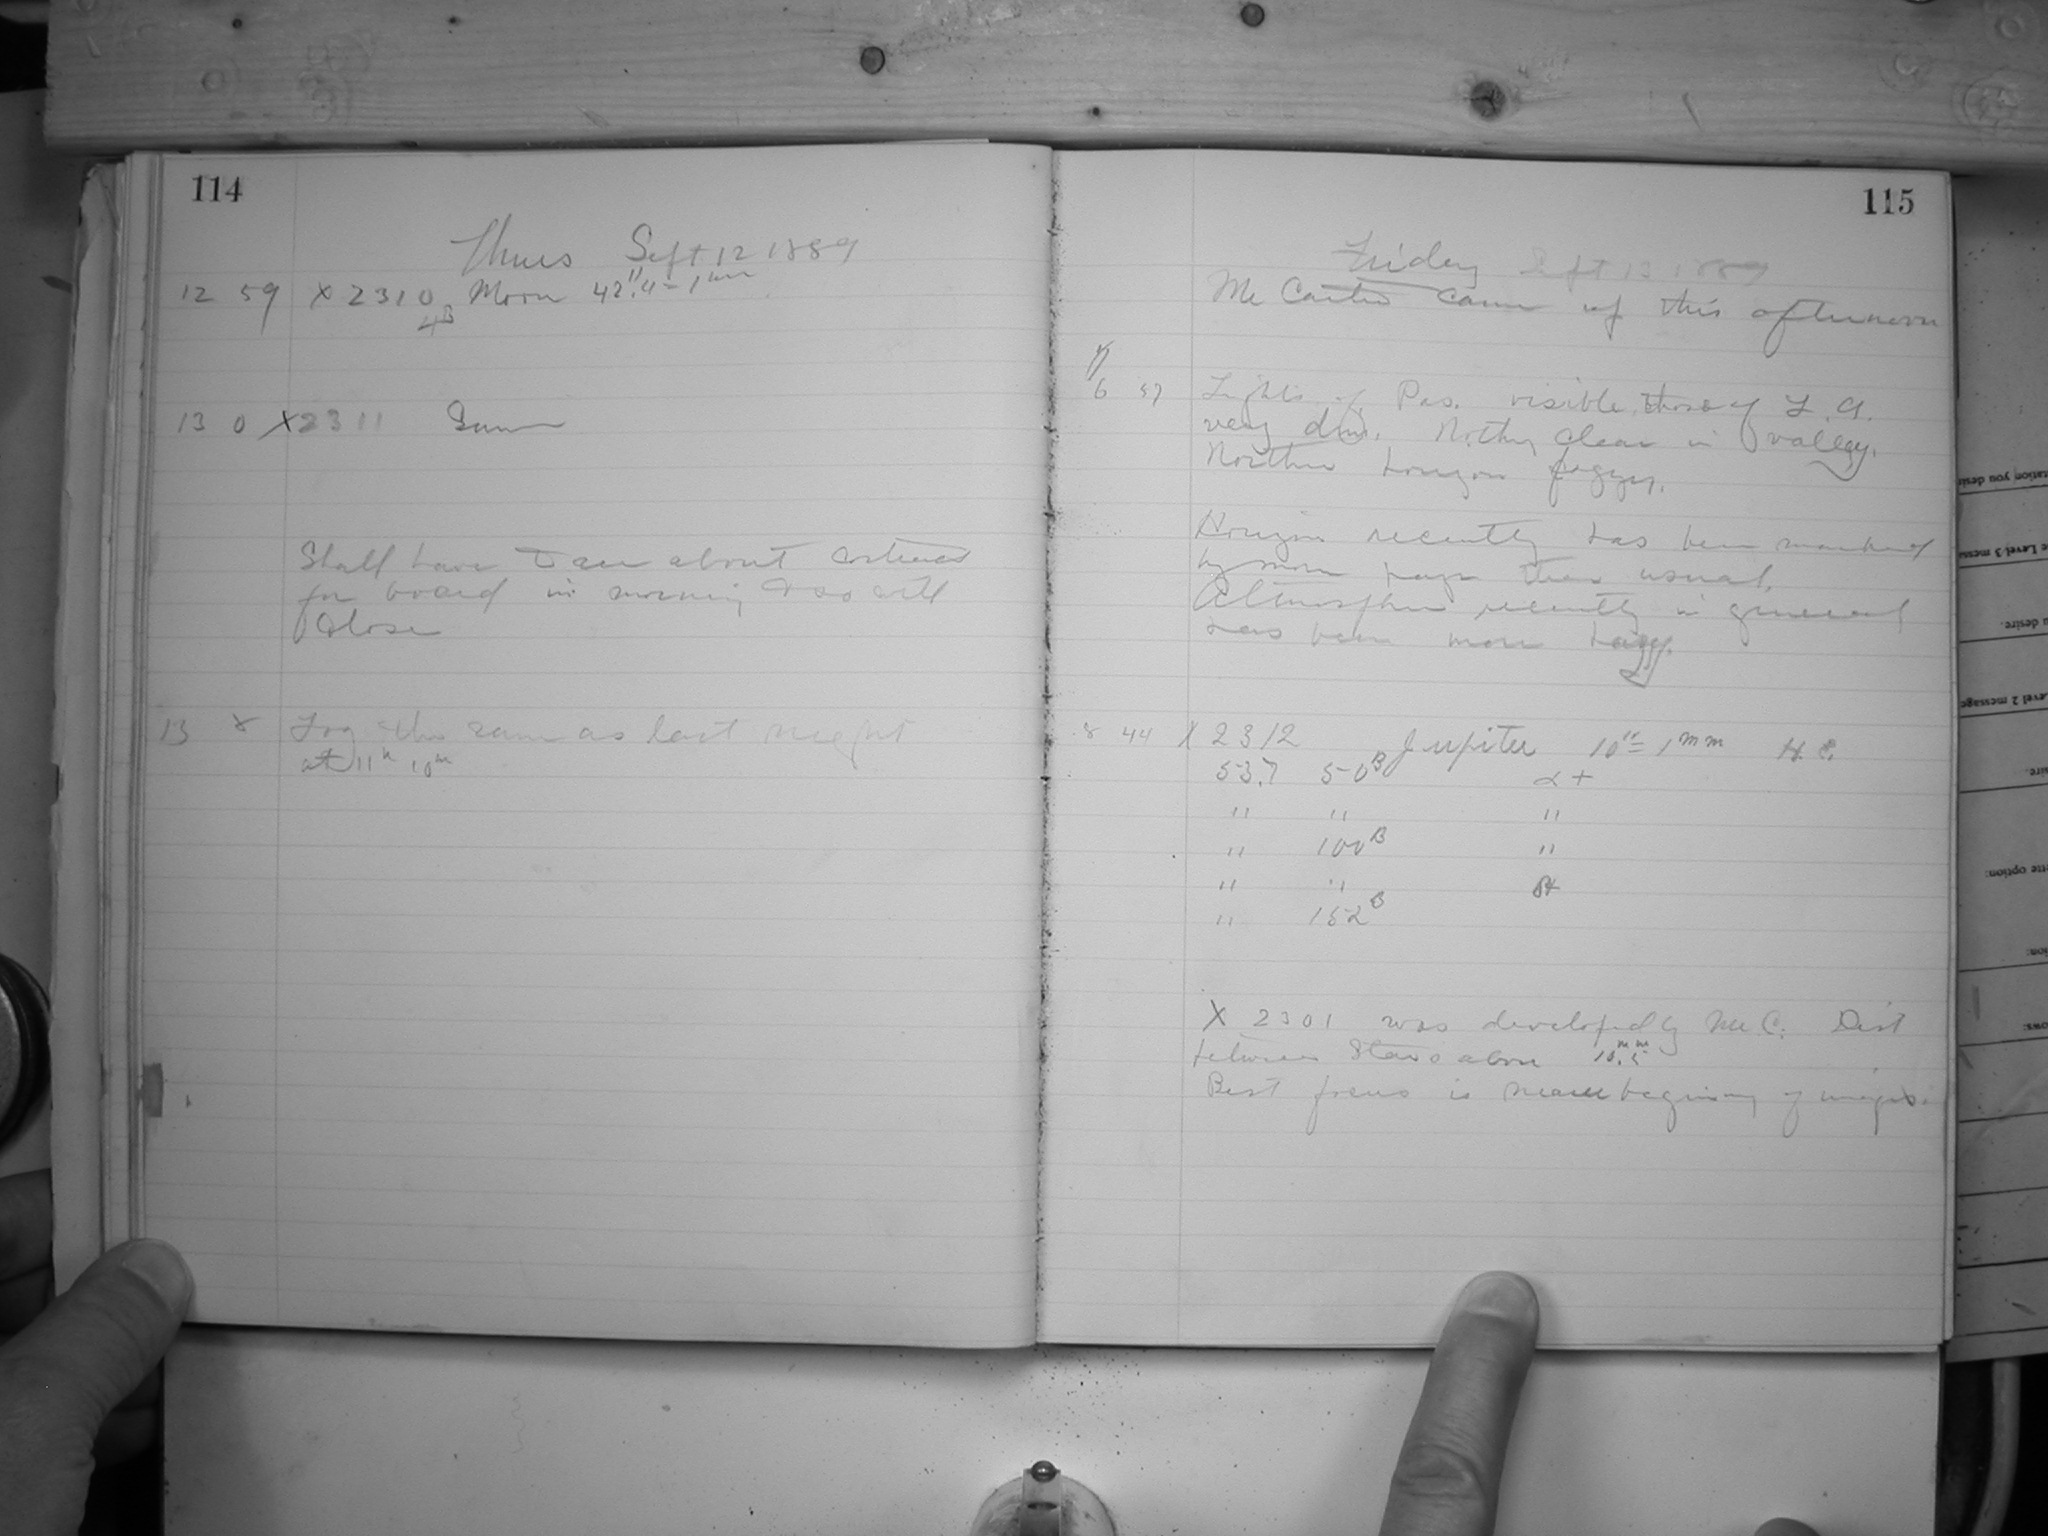 114
Thurs Sept 12 1889
12 59 X 2310 Moon 42".4 = 1mm
4B
13 0 X 2311 Same
Shall have to see about
for board in morning & so will
close
13 8 Fog the same as last night
at 11h 10m
115
Friday Sept 13 1889
Mc Carter came up this afternoon
6 57 Lights of Pas. visible, those of L.A.
very dim. Nothing clear in valley.
Northern horizon foggy.
Horizon recently has been marked
by more haze than usual.
Atmosphere recently in general
has been more hazy.
8 44 X 2312 Jupiter 10" = 1mm H. C.
53.7 50B α +
" " "
" 100B "
" "
" 152B
X 2301 was developed by Mc C. Dist
between Stars about 10.5mm
Best focus is nearer beginning of